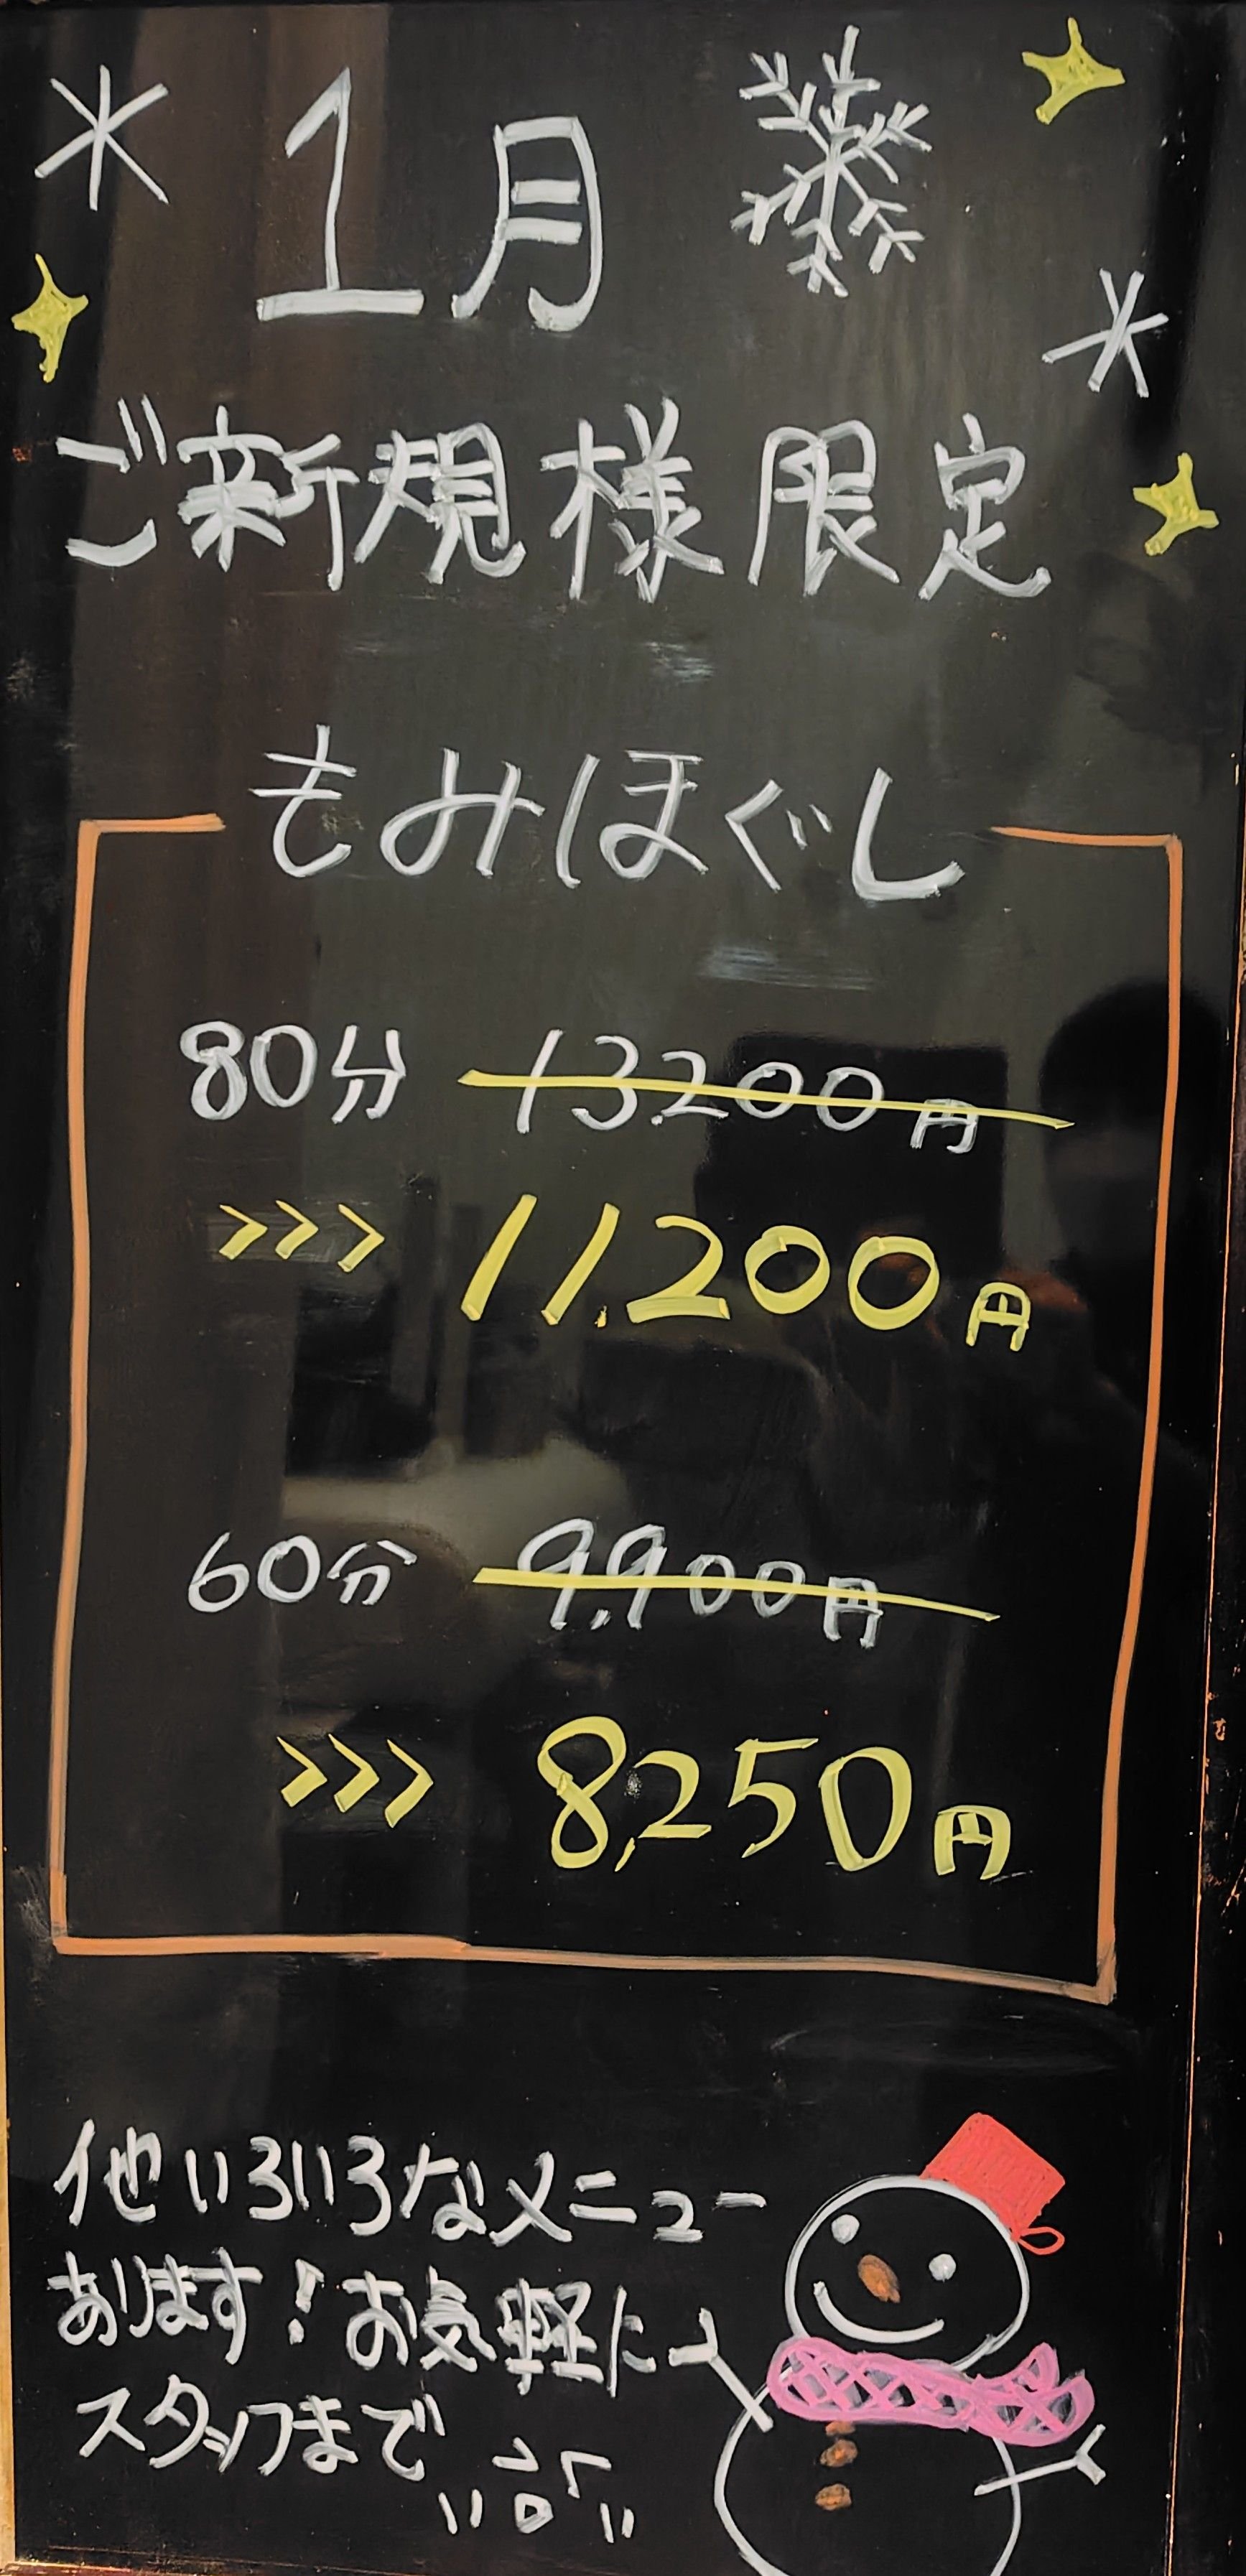 1月
ご新規様限定
もみほぐし
80分 13.200円
>>> 11.200円
60分 9,900円
>>> 8,250円
他いろいろなメニュー
あります!お気軽に
スタッフまで